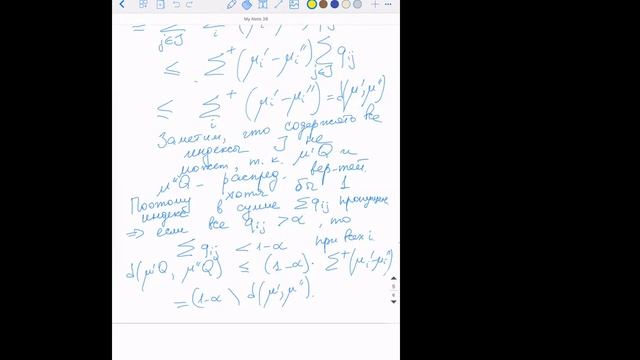 My Note 28
= Σ_{j∈J} Σ_i (μ_i' - μ_i'') q_ij
≤ Σ⁺ (μ_i' - μ_i'') Σ_{j∈J} q_ij
≤ Σ_i⁺ (μ_i' - μ_i'') = d(μ', μ'')
Заметим, что содержать все
индексы J не
может, т.к. μ'Q и
μ''Q - распред. вер-тей.
Поэтому хотя бы 1
индекс в сумме Σq_ij пропущен
⇒ если все q_ij > α, то
Σ q_ij < 1-α при всех i
d(μ'Q, μ''Q) ≤ (1-α) · Σ⁺(μ_i' - μ_i'')
= (1-α) d(μ', μ'').